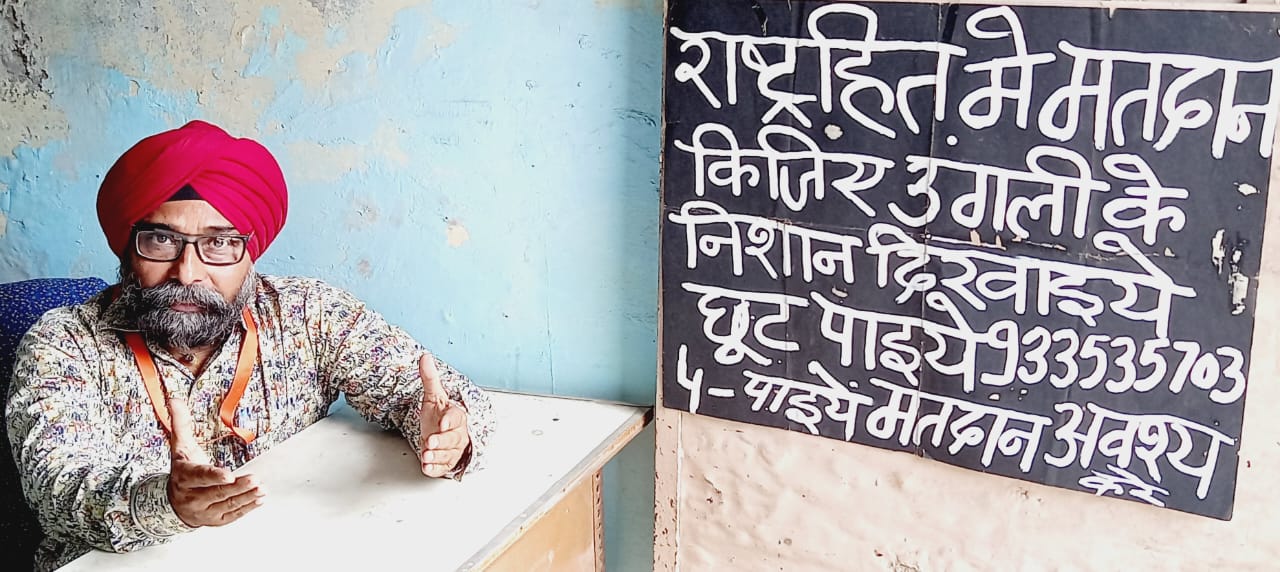 राष्ट्रहित मे मतदान
किजिए उगली के
निशान दिखाइये
छूट पाइये 933535703
5 - पाइये मतदान अवश्य
करे